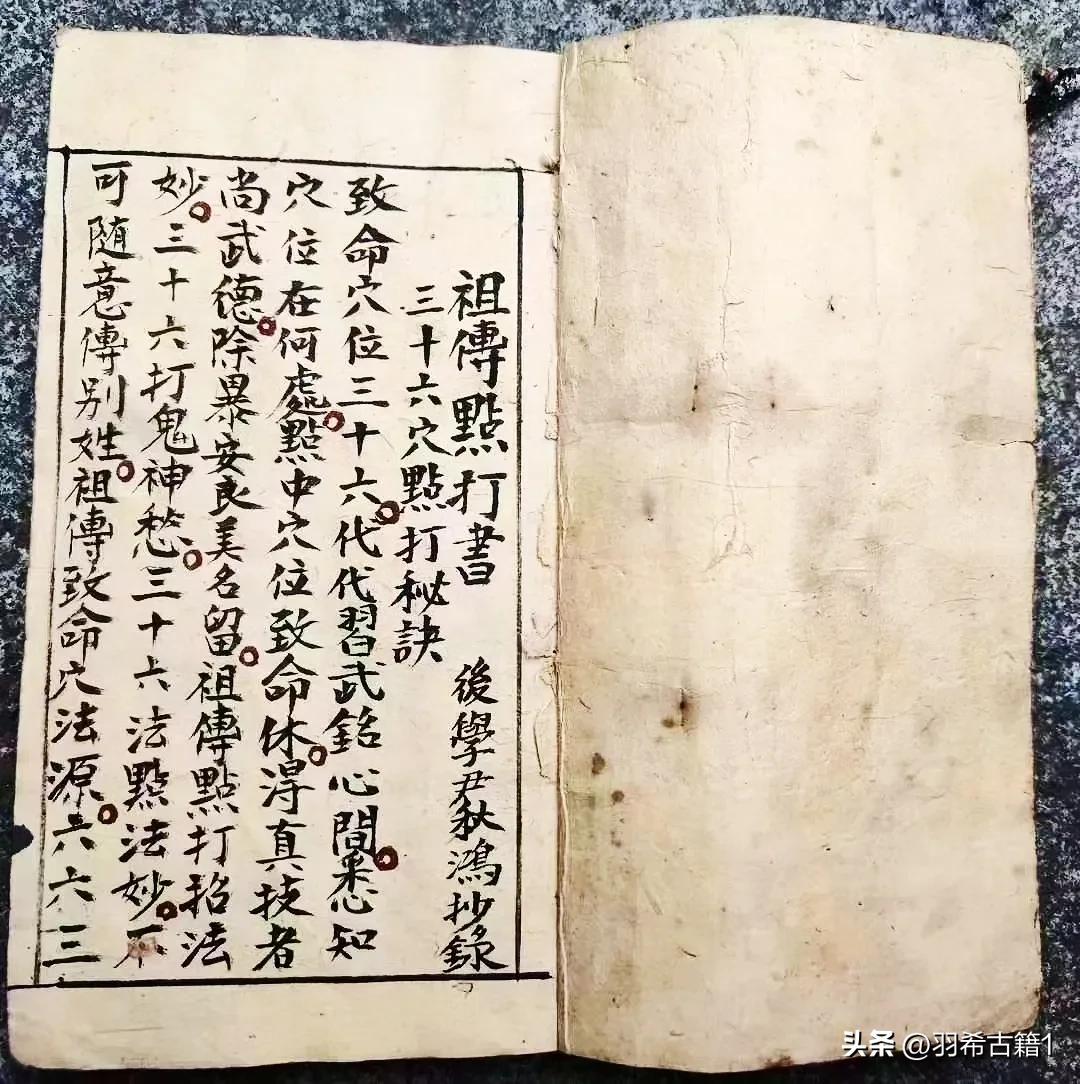 祖傳點打書 後學尹秋鴻抄錄
三十六穴點打秘訣
致命穴位三十六。代代習武銘心間。悉心知
穴位在何處。點中穴位致命休。得真技者
尚武德。除暴安良美名留。祖傳點打招法
妙。三十六打鬼神愁。三十六法點法妙。不
可隨意傳别姓。祖傳致命穴法源。六六三
头条 @羽希古籍1